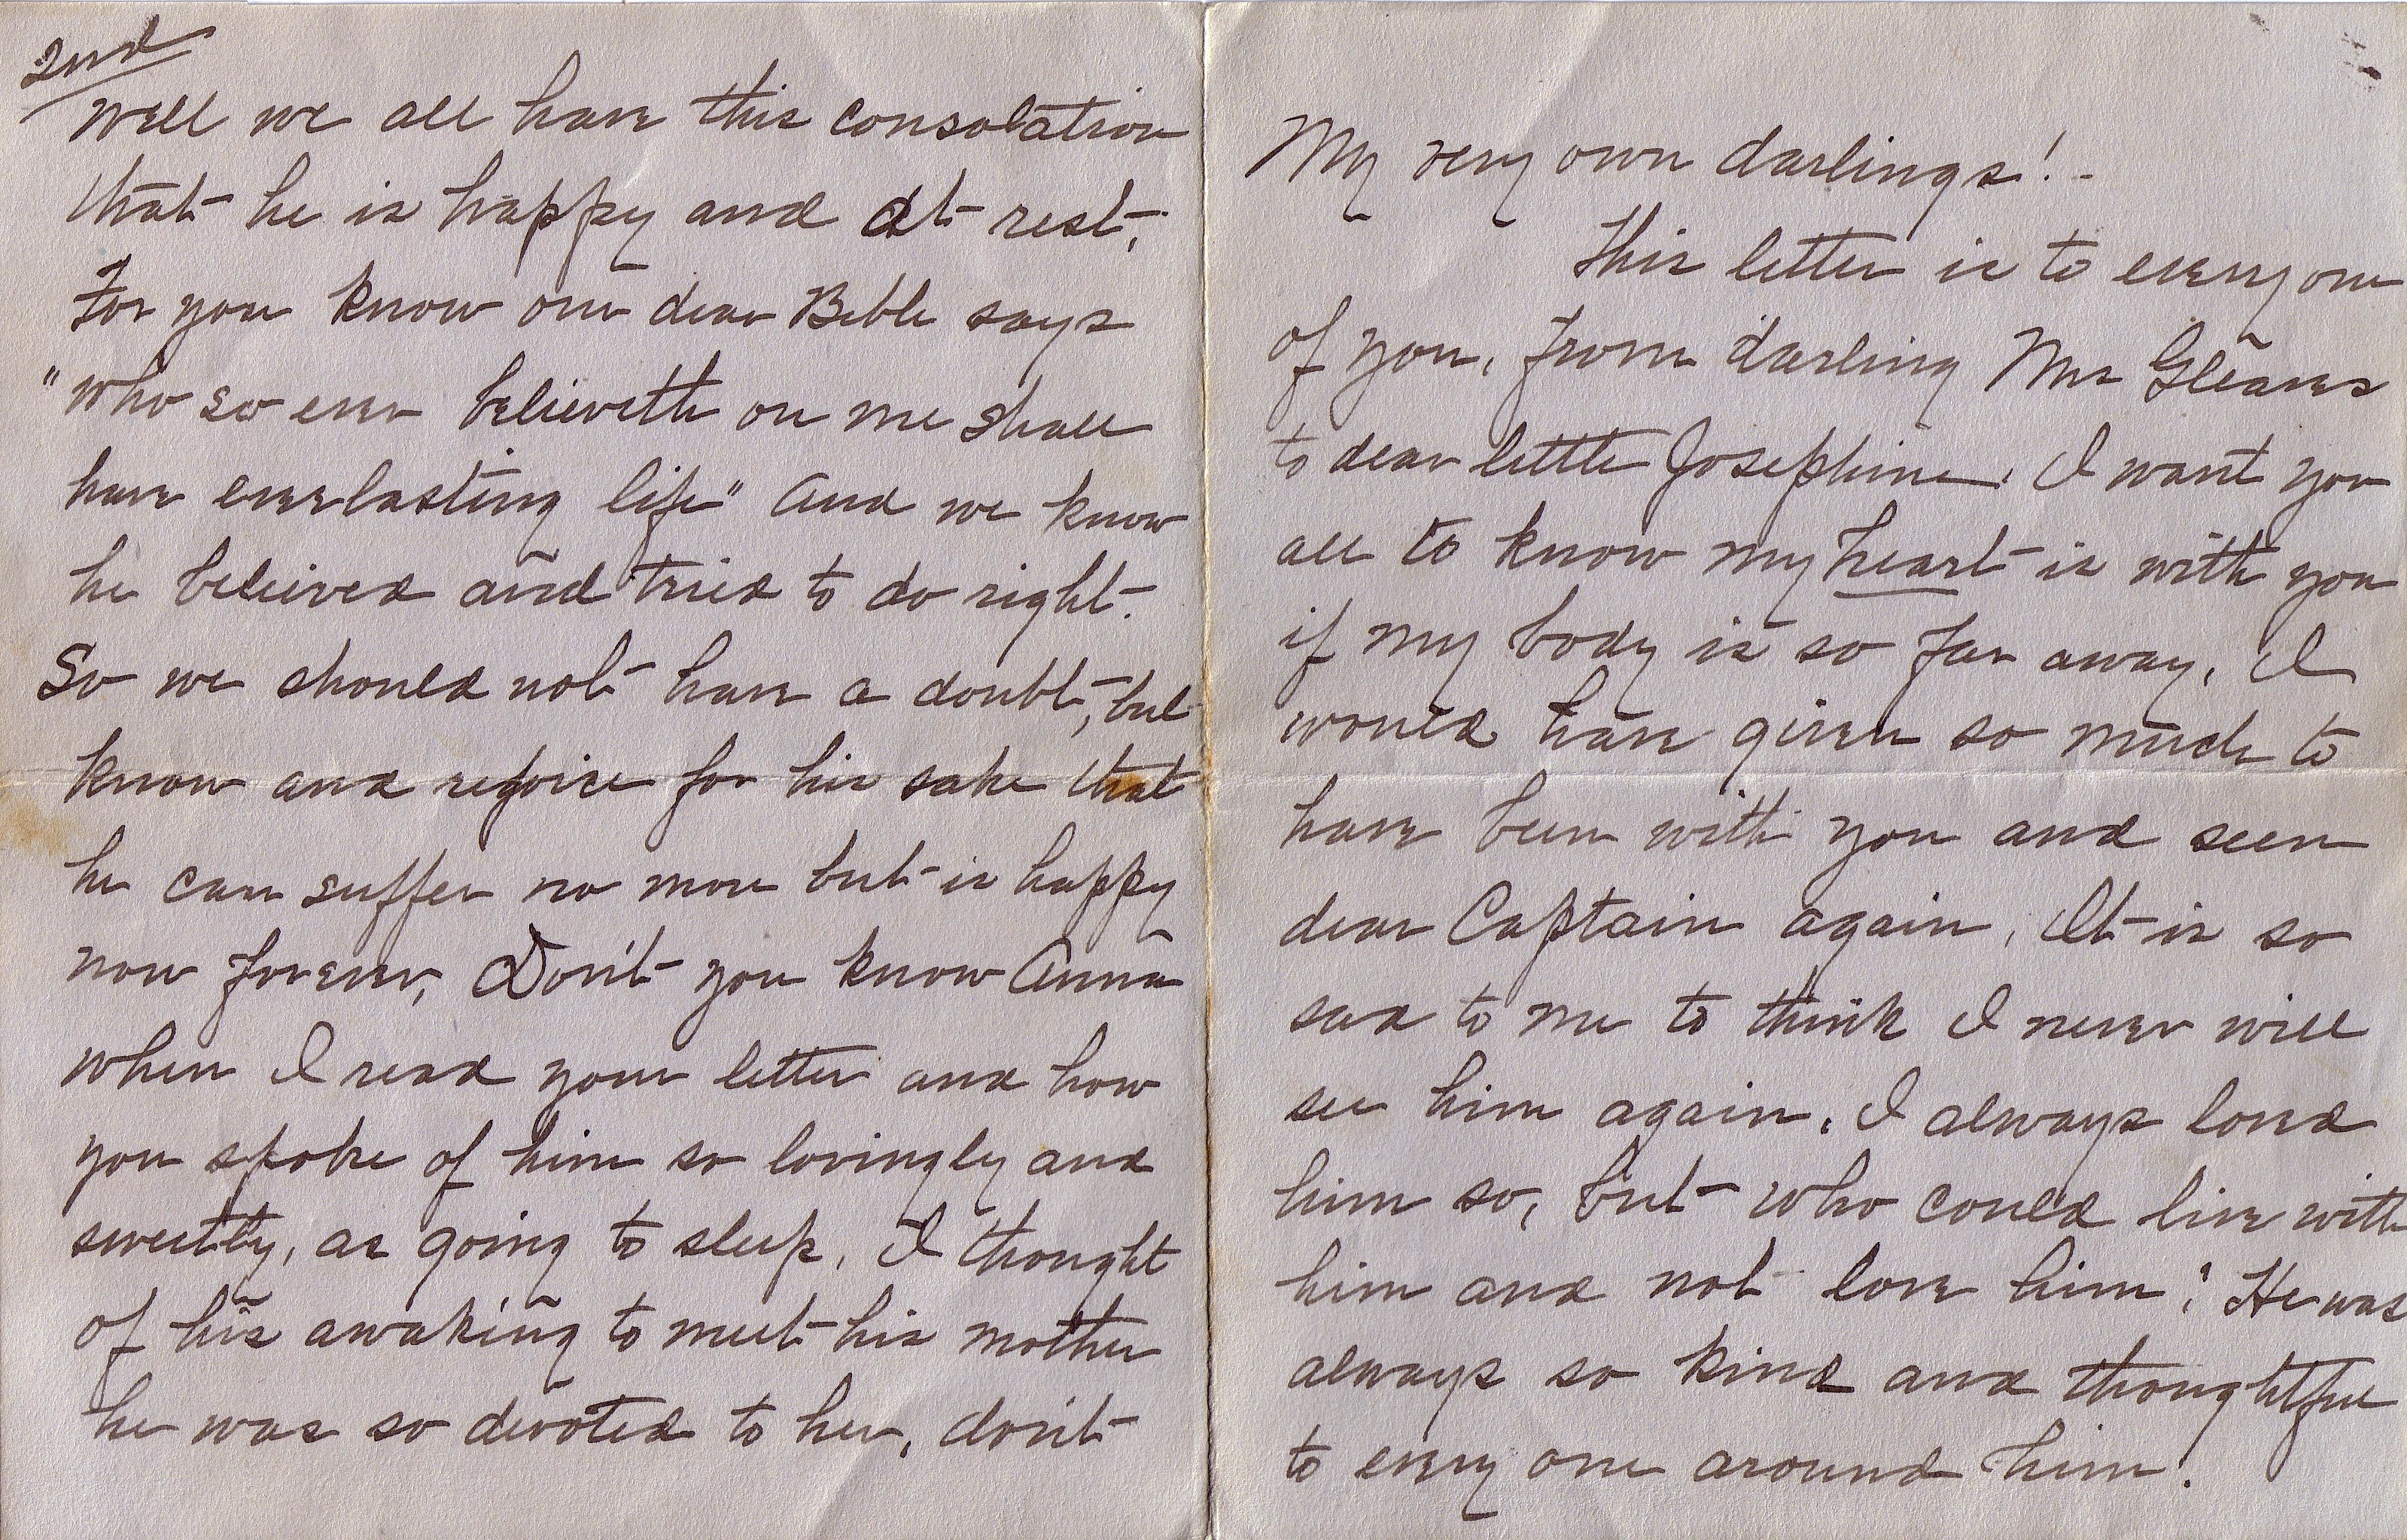 My very own darlings! -
This letter is to every one
of you, from darling Mr Gleaves
to dear little Josephine. I want you
all to know my heart is with you
if my body is so far away. I
would have given so much to
have been with you and seen
dear Captain again. It is so
sad to me to think I never will
see him again. I always loved
him so, but who could live with
him and not love him? He was
always so kind and thoughtful
to every one around him!
2nd
Well we all have this consolation
that he is happy and at rest,
For you know our dear Bible says
"Who so ever believeth on me shall
have everlasting life" and we know
he believed and tried to do right.
So we should not have a doubt, but
know and rejoice for his sake that
he can suffer no more but is happy
now forever, Don't you know Anna
when I read your letter and how
you spoke of him so lovingly and
sweetly, as going to sleep, I thought
of his awaking to meet his mother
he was so devoted to her, don't